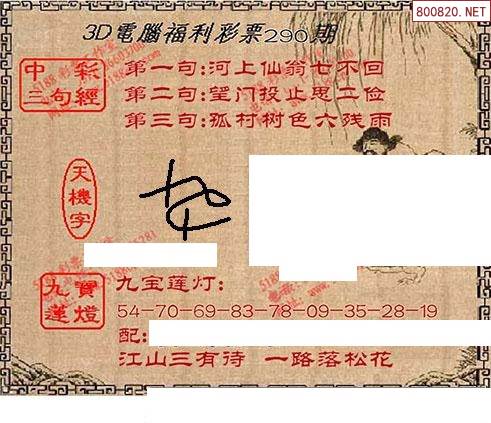 800820.NET
3D電腦福利彩票290期
中彩
三句經
第一句:河上仙翁七不回
第二句:望门投止思二俭
第三句:孤村树色六残雨
天機字
九寶
蓮燈
九宝莲灯:
54-70-69-83-78-09-35-28-19
配:
江山三有待 一路落松花